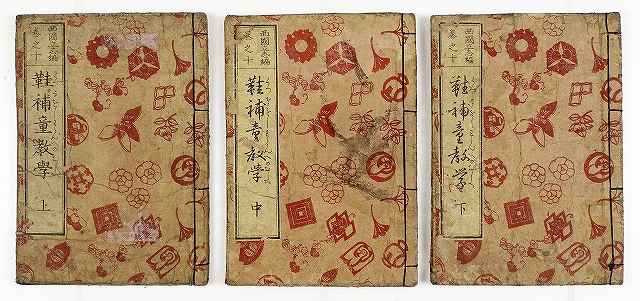 西國立志編
巻之十
鞋補童教學 上
西國立志編
巻之十
鞋補童教學 中
西國立志編
巻之十
鞋補童教学 下